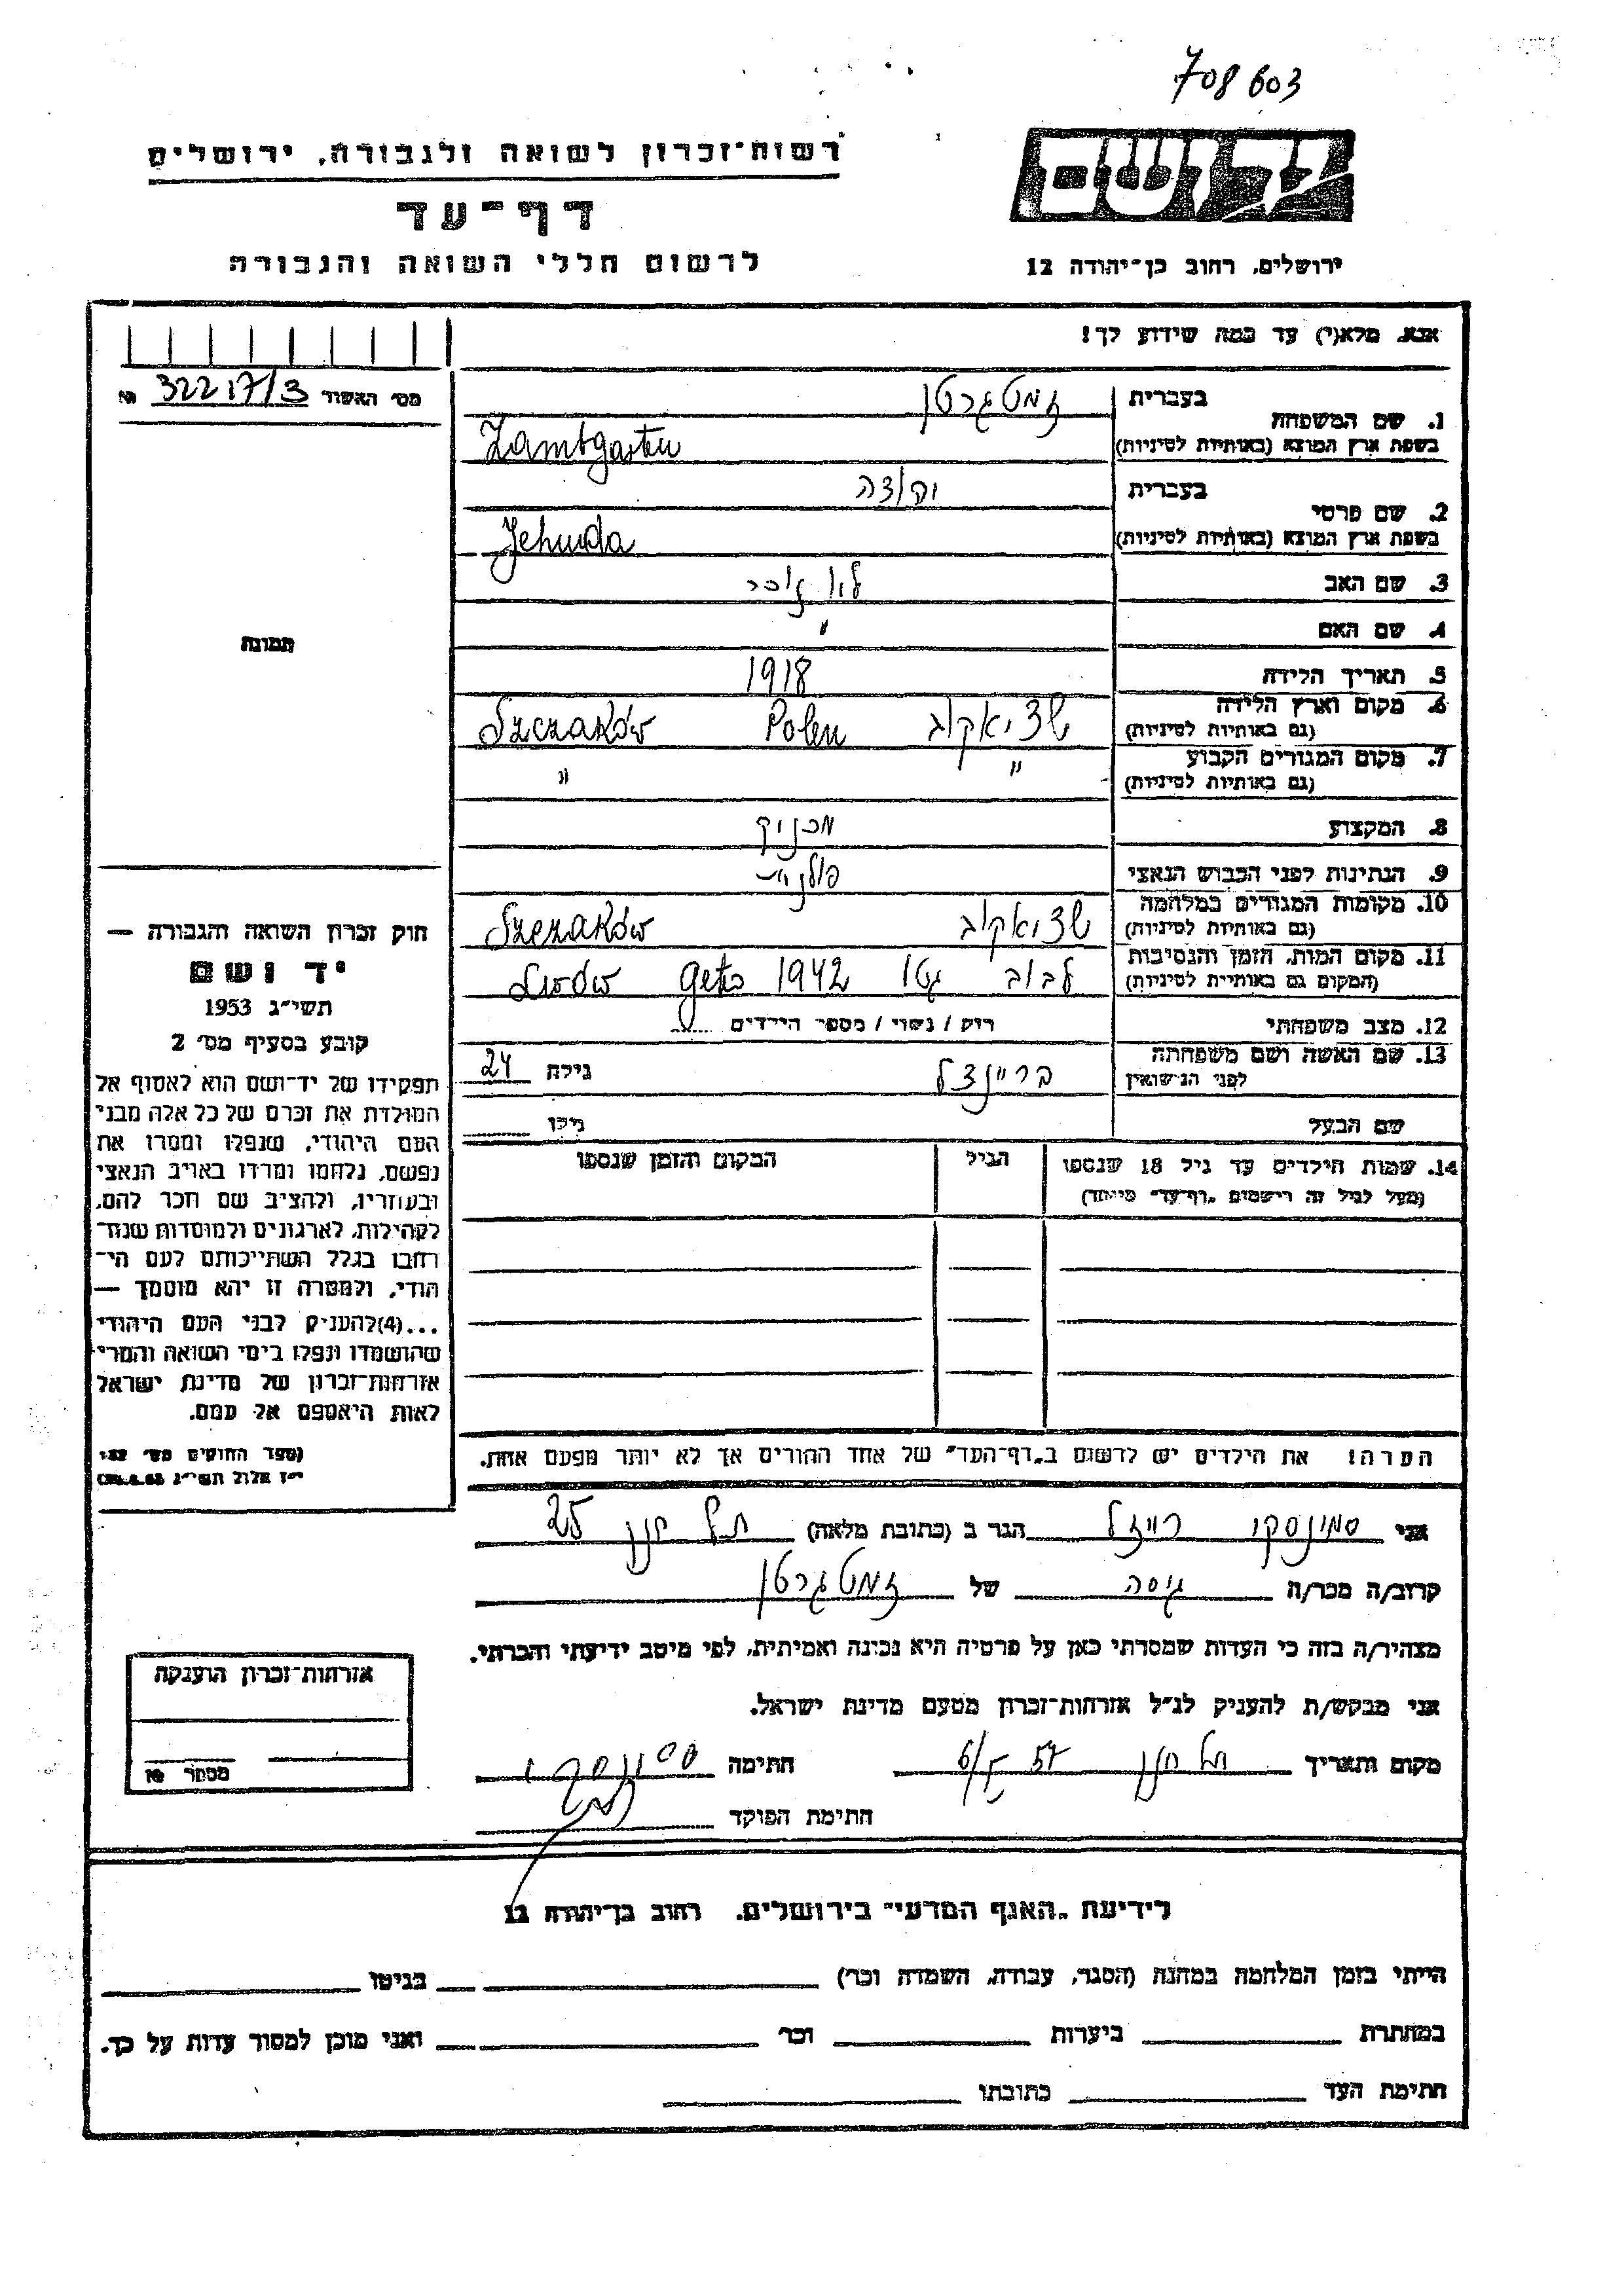 708603
רשות־זכרון לשואה ולגבורה, ירושלים
יד ושם
דף־עד
לרשום חללי השואה והגבורה
ירושלים, רחוב בן־יהודה 12
אנא, מלא(י) עד כמה שידוע לך!
מס׳ האשור 32217/3 №
בעברית זמטגרטן
1. שם המשפחה
בשפת ארץ המוצא (באותיות לטיניות) Zamtgarten
בעברית יהודה
2. שם פרטי
בשפת ארץ המוצא (באותיות לטיניות) Jehuda
3. שם האב לא זוכר
4. שם האם "
תמונה
5. תאריך הלידה 1918
6. מקום וארץ הלידה
(גם באותיות לטיניות) שציאקוב Polen Szczaków
7. מקום המגורים הקבוע " "
(גם באותיות לטיניות)
8. המקצוע מכניק
9. הנתינות לפני הכבוש הנאצי
10. מקומות המגורים במלחמה
(גם באותיות לטיניות) שציאקוב Szczaków
11. מקום המות, הזמן והנסיבות
(המקום גם באותיות לטיניות) לבוב גטו 1942 geto Lwów
12. מצב משפחתי רווק / נשוי / מספר הילדים
13. שם האשה ושם משפחתה
לפני הנישואין בריינדל גילה 24
שם הבעל גילו
14. שמות הילדים עד גיל 18 שנספו הגיל המקום והזמן שנספו
(מעל לגיל זה רישמים „דף־עד" מיוחד)
חוק זכרון השואה והגבורה —
יד ושם
תשי״ג 1953
קובע בסעיף מס׳ 2
תפקידו של יד־ושם הוא לאסוף אל
המולדת את זכרם של כל אלה מבני
העם היהודי, שנפלו ומסרו את
נפשם, נלחמו ומרדו באויב הנאצי
ובעוזריו, ולהציב שם וזכר להם,
לקהילות, לארגונים ולמוסדות שנח־
רבו בגלל השתייכותם לעם הי־
הודי, ולמטרה זו יהא מוסמך —
...(4)להעניק לבני העם היהודי
שהושמדו ונפלו בימי השואה והמרי
אזרחות־זכרון של מדינת ישראל
לאות היאספם אל עמם.
(ספר החוקים מס׳ 132
י״ז אלול תשי״ג
הערה! את הילדים יש לרשום ב„דף־העד" של אחד ההורים אך לא יותר מפעם אחת.
אני סמונסקו רייזל הגר ב (כתובת מלאה) תל חנן 25
קרוב/ה מכר/ה גיסה של זמטגרטן
מצהיר/ה בזה כי העדות שמסרתי כאן על פרטיה היא נכונה ואמיתית, לפי מיטב ידיעתי והכרתי.
אני מבקש/ת להעניק לנ״ל אזרחות־זכרון מטעם מדינת ישראל.
מקום ותאריך תל חנן 6/5 57 חתימה
חתימת הפוקד
אזרחות־זכרון הוענקה
מספר №
לידיעת „האגף המדעי" בירושלים, רחוב בן־יהודה 12
הייתי בזמן המלחמה במחנה (הסגר, עבודה, השמדה וכו׳) בגיטו
במחתרת ביערות וכו׳ ואני מוכן למסור עדות על כך.
חתימת העד כתובתו